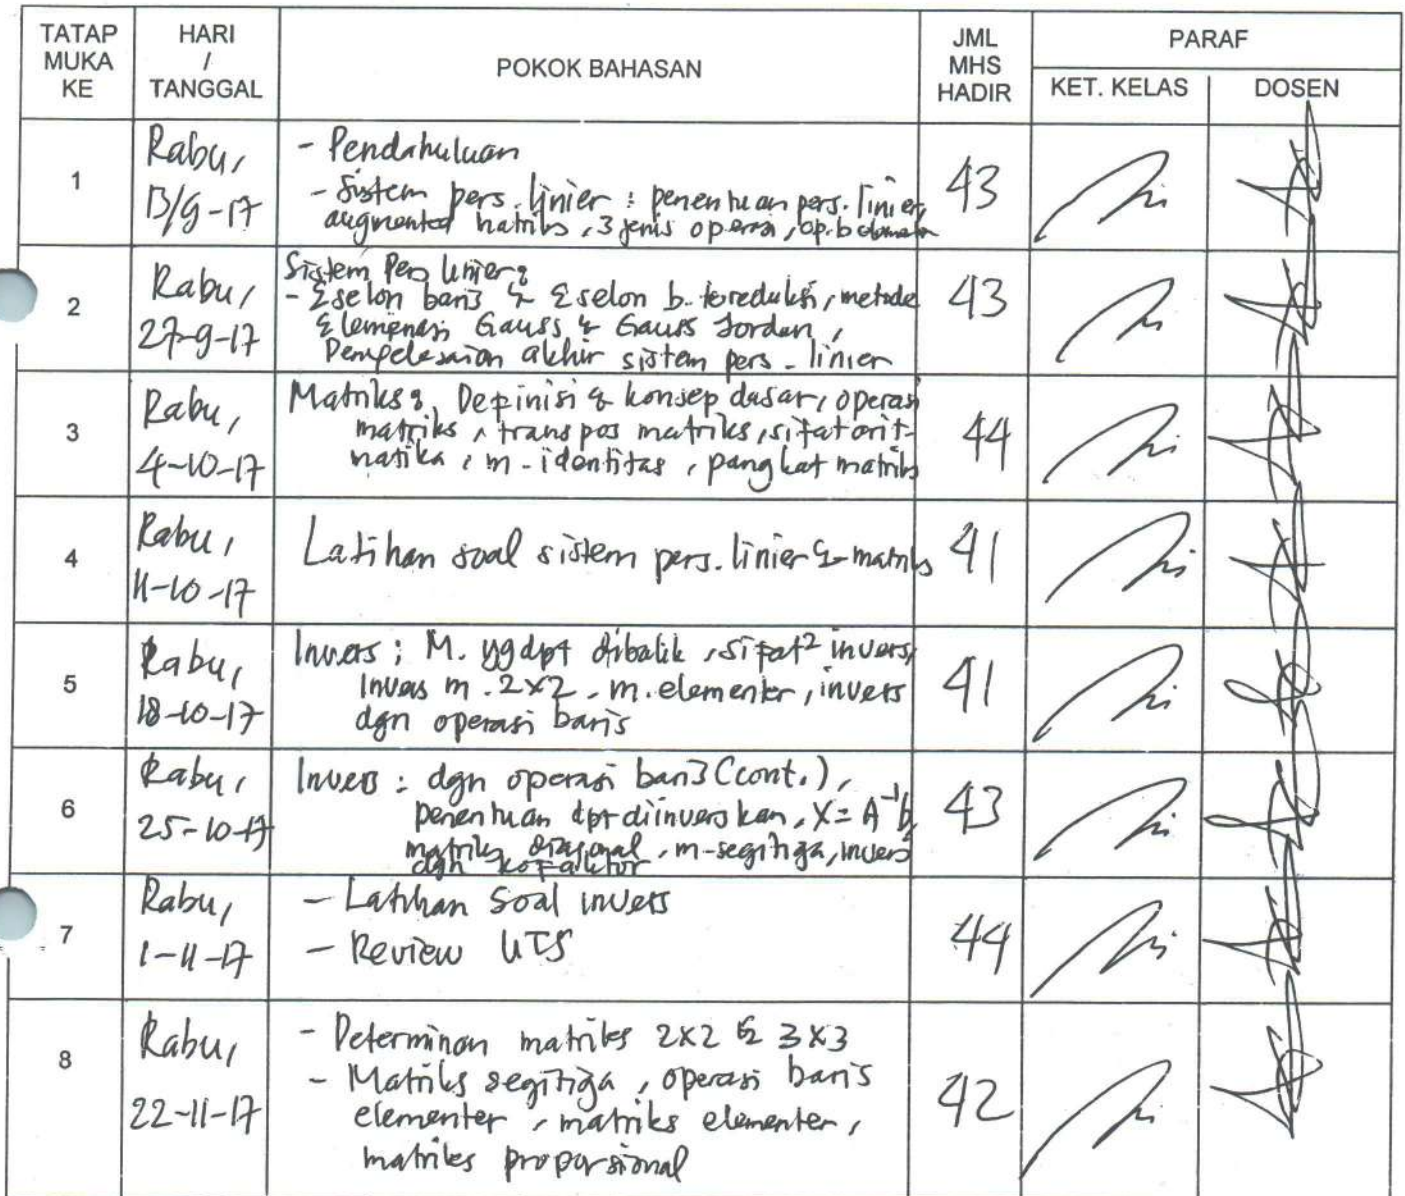 TATAP MUKA KE | HARI / TANGGAL | POKOK BAHASAN | JML MHS HADIR | PARAF
KET. KELAS | DOSEN
1 | Rabu, 13/9-17 | 43
- Pendahuluan
- Sistem pers. linier : penentuan pers. linier,
augmented matriks, 3 jenis operasi, op. b
2 | Rabu, 27-9-17 | 43
Sistem Pers linier:
- Eselon baris & Eselon b. tereduksi, metode
Elemenasi Gauss & Gauss Jordan,
Penyelesaian akhir sistem pers. linier
3 | Rabu, 4-10-17 | 44
Matriks: Definisi & konsep dasar, operasi
matriks, transpos matriks, sifat arit-
matika, m. identitas, pangkat matriks
4 | Rabu, 11-10-17 | 41
Latihan soal sistem pers. linier & matriks
5 | Rabu, 18-10-17 | 41
Invers; M. yg dpt dibalik, sifat² invers,
Invers m. 2x2, m. elementer, invers
dgn operasi baris
6 | Rabu, 25-10-17 | 43
Invers : dgn operasi baris (cont.),
penentuan dpt diinverskan, X = A⁻¹b,
matriks diagonal, m-segitiga, invers
dgn kofaktor
7 | Rabu, 1-11-17 | 44
- Latihan Soal invers
- Review UTS
8 | Rabu, 22-11-17 | 42
- Determinan matriks 2x2 & 3x3
- Matriks segitiga, operasi baris
elementer, matriks elementer,
matriks proporsional